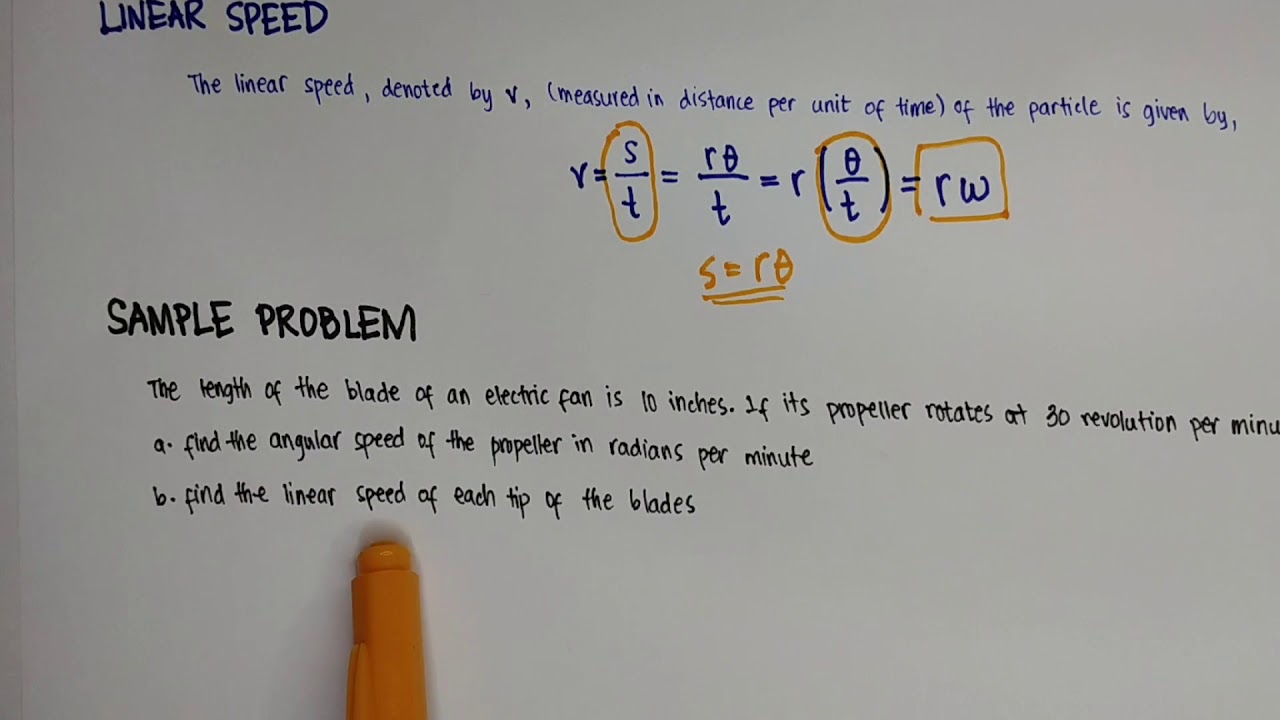 LINEAR SPEED
The linear speed, denoted by v, (measured in distance per unit of time) of the particle is given by,
v = s/t = rθ/t = r(θ/t) = rω
s = rθ
SAMPLE PROBLEM
The length of the blade of an electric fan is 10 inches. If its propeller rotates at 30 revolution per minu
a. find the angular speed of the propeller in radians per minute
b. find the linear speed of each tip of the blades